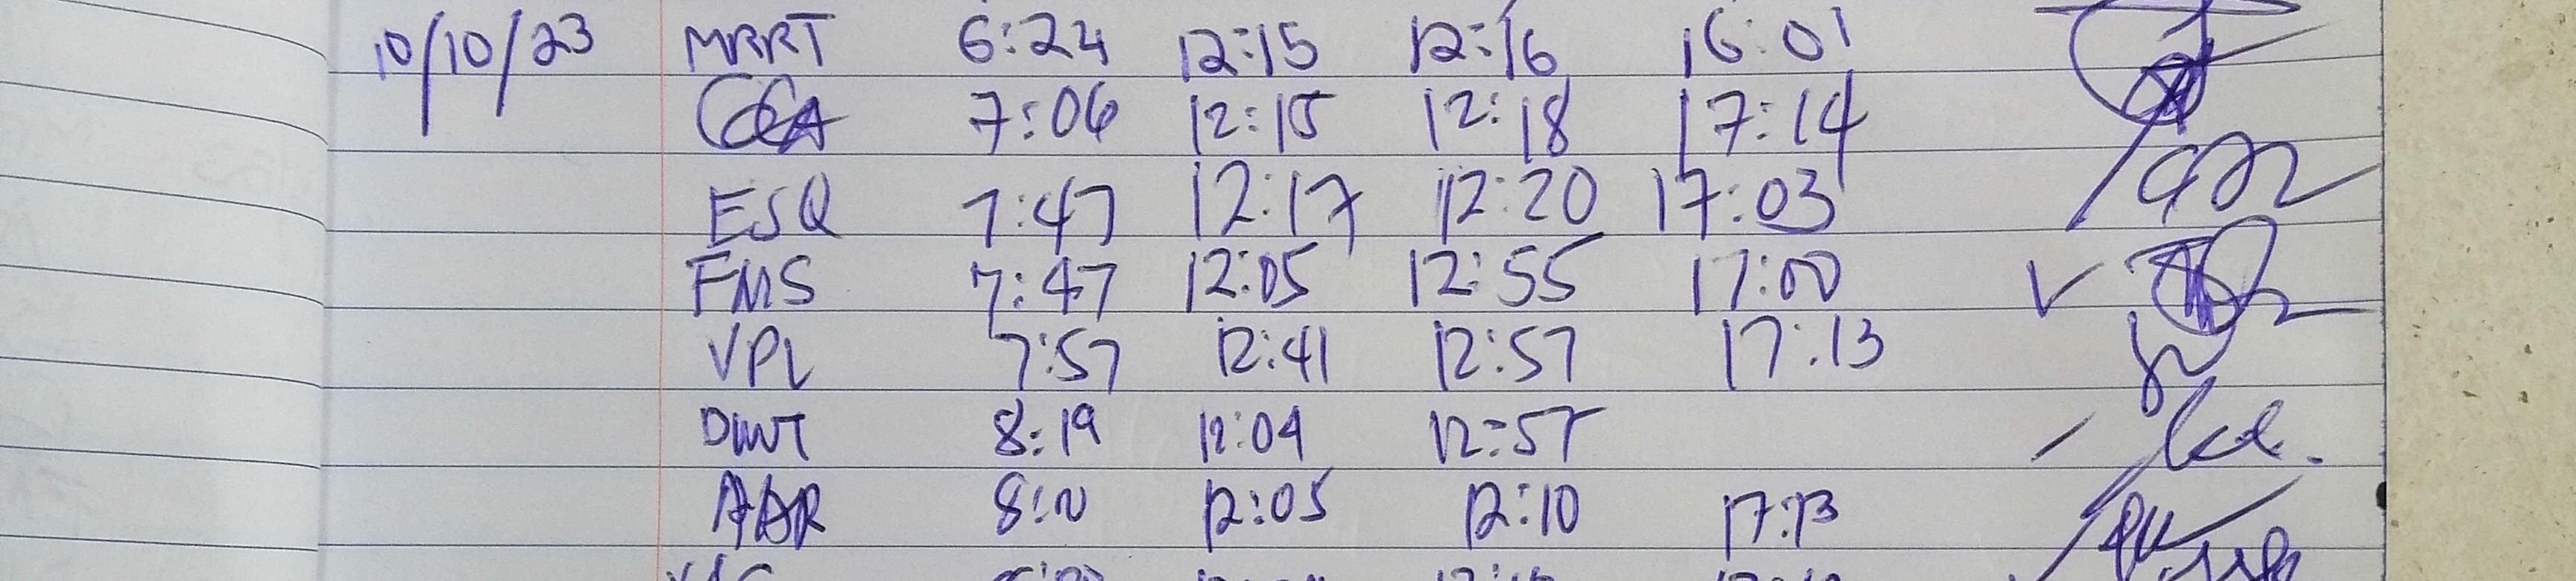 10/10/23 MRRT 6:24 12:15 12:16 16:01
CCA 7:06 12:15 12:18 17:14
ESQ 7:47 12:17 12:20 17:03
FMS 7:47 12:05 12:55 17:00
VPL 7:57 12:41 12:57 17:13
DWT 8:19 12:04 12:57
AAR 12:05 12:10 17:13